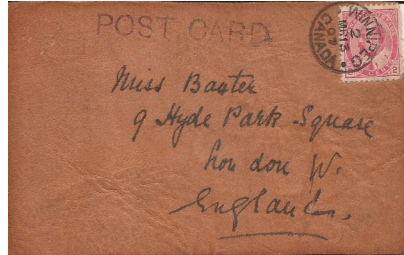 POST CARD
WINNIPEG
2
MR 13
07
CANADA
Miss Baxter
9 Hyde Park Square
London W.
England.